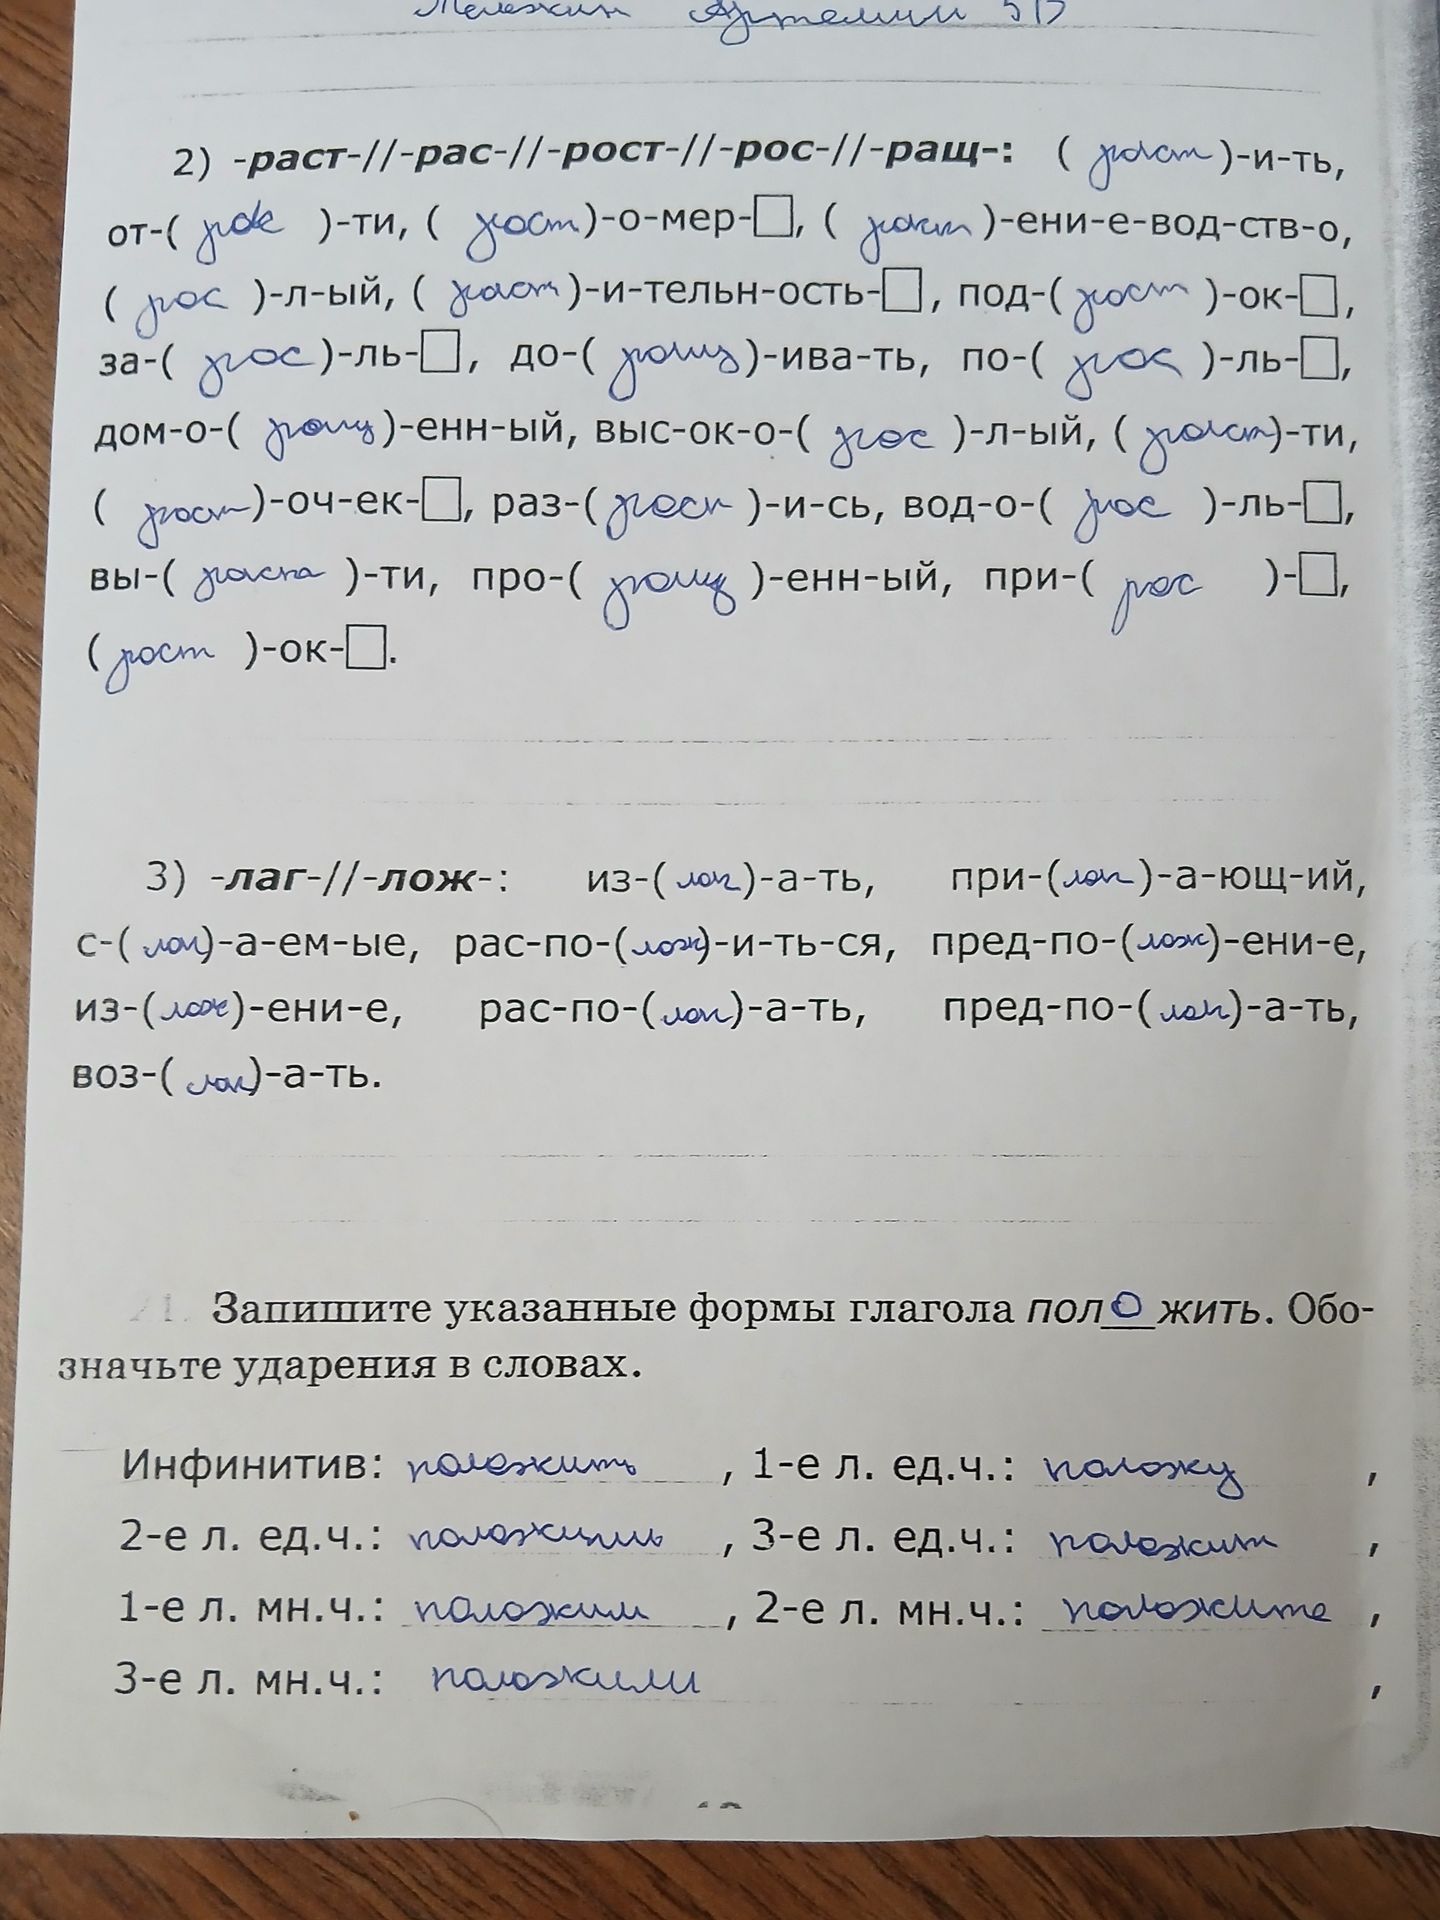 Артемий 5В
2) -раст-//-рас-//-рост-//-рос-//-ращ-: ( раст )-и-ть,
от-( )-ти, ( рост )-о-мер-☐, ( раст )-ени-е-вод-ств-о,
( рос )-л-ый, ( раст )-и-тельн-ость-☐, под-( рост )-ок-☐,
за-( рос )-ль-☐, до-( ращ )-ива-ть, по-( рос )-ль-☐,
дом-о-( ращ )-енн-ый, выс-ок-о-( рос )-л-ый, ( раст )-ти,
( рост )-оч-ек-☐, раз-( рост )-и-сь, вод-о-( рос )-ль-☐,
вы-( раст )-ти, про-( ращ )-енн-ый, при-( рос )-☐,
( рост )-ок-☐.
3) -лаг-//-лож-: из-(лаг)-а-ть, при-(лаг)-а-ющ-ий,
с-(лаг)-а-ем-ые, рас-по-(лож)-и-ть-ся, пред-по-(лож)-ени-е,
из-(лож)-ени-е, рас-по-(лаг)-а-ть, пред-по-(лаг)-а-ть,
воз-(лаг)-а-ть.
21. Запишите указанные формы глагола пол о жить. Обо-
значьте ударения в словах.
Инфинитив: положить , 1-е л. ед.ч.: положу ,
2-е л. ед.ч.: положишь , 3-е л. ед.ч.: положит ,
1-е л. мн.ч.: положим , 2-е л. мн.ч.: положите ,
3-е л. мн.ч.: положили ,